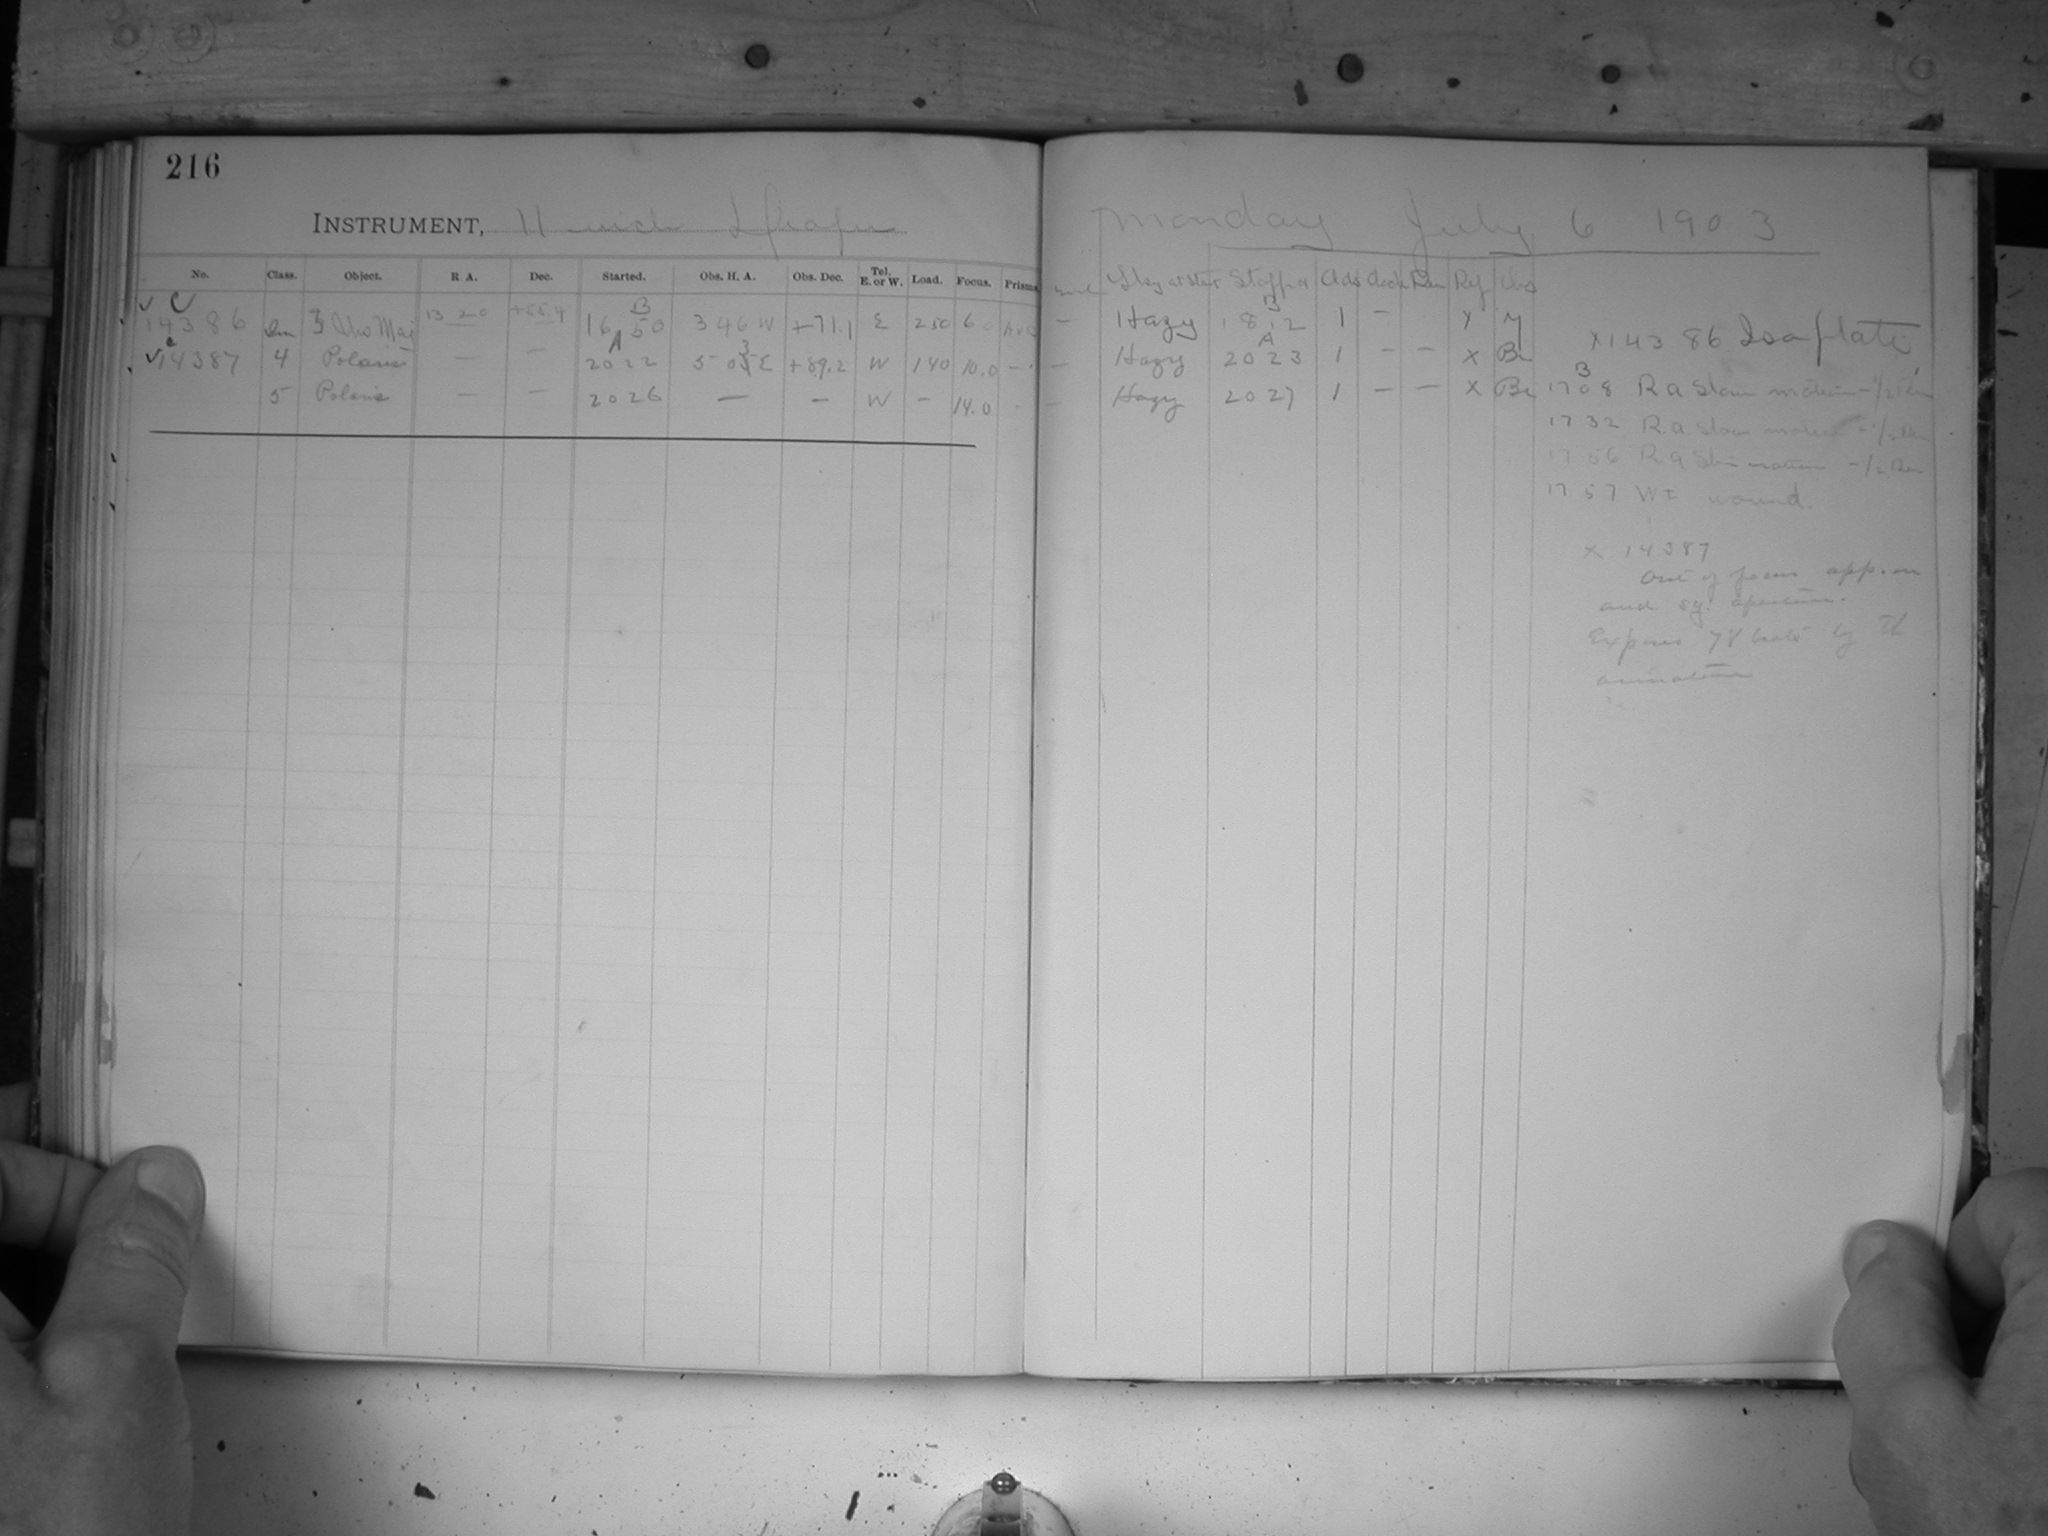 216
INSTRUMENT, 11 inch Draper
Monday July 6 1903
No. Class. Object. R. A. Dec. Started. Obs. H. A. Obs. Dec. Tel. E. or W. Load. Focus. Prisms.
Sky at start Stopped Ads Clock Ren Ref Obs
14386 ζ Urs Maj 13 20 +55.4 16 50 B 3 46 W +71.1 E 250 6.0 — Hazy 18 12 B 1 – y
14387 4 Polaris — — 20 22 A 5 03 E +89.2 W 140 10.0 — — Hazy 20 23 A 1 – – X Br
5 Polaris — — 20 26 — – W – 14.0 — Hazy 20 27 1 – – X Br
X 14386 Iso plate
17 08 B R a slow motion –1/2 Rev
17 32 R. a. slow motion –1/2 Rev
17 56 R a Slow motion –1/2 Rev
17 57 Wt wound.
X 14387
Out of focus app. on
and sq. aperture.